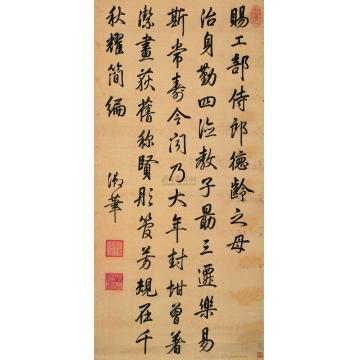 賜工部侍郎德齡之母
治身勤四德教子最三遷樂易
斯常壽令聞乃大年封坩曾著
潔畫荻舊称賢彤管芳規在千
秋耀簡編
御筆